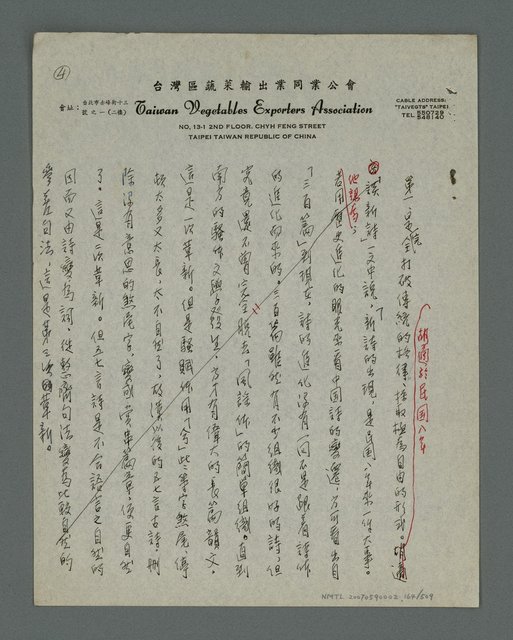 ④
台灣區蔬菜輸出業同業公會
會址：台北市赤峰街十三號之一（二樓）
Taiwan Vegetables Exporters Association
NO. 13-1 2ND FLOOR. CHYH FENG STREET
TAIPEI TAIWAN REPUBLIC OF CHINA
CABLE ADDRESS:
"TAIVEGTS" TAIPEI
TEL. 550729
548140
第一是完全打破傳統的格律，採取極為自由的形式。胡適
胡適於民國八年
「談新詩」一文中說，「新詩的出現，是民國八年來一件大事。
他認為，
若用歷史進化的眼光來看中國詩的變遷，方可看出自
「三百篇」到現在，詩的進化沒有一回不是跟著詩體
的進化而來的。三百篇雖然有不少組織很好的詩，但
究竟還不曾完全脫去「風謠體」的簡單組織。直到
南方的騷體文學發生，方才有偉大的長篇韻文。
這是一次革新。但是騷賦體用「兮」此等字煞尾，停
頓太多又太長，太不自然了，故漢以後的五七言古詩，刪
除沒有意思的煞尾字，變成貫串篇章，便更自然
了。這是二次革新。但五七言詩是不合語言之自然的
因而又由詩變為詞，從整齊句法變為比較自然的
參差句法，這是第三次的革新。
NMTL 20070590002 164/509